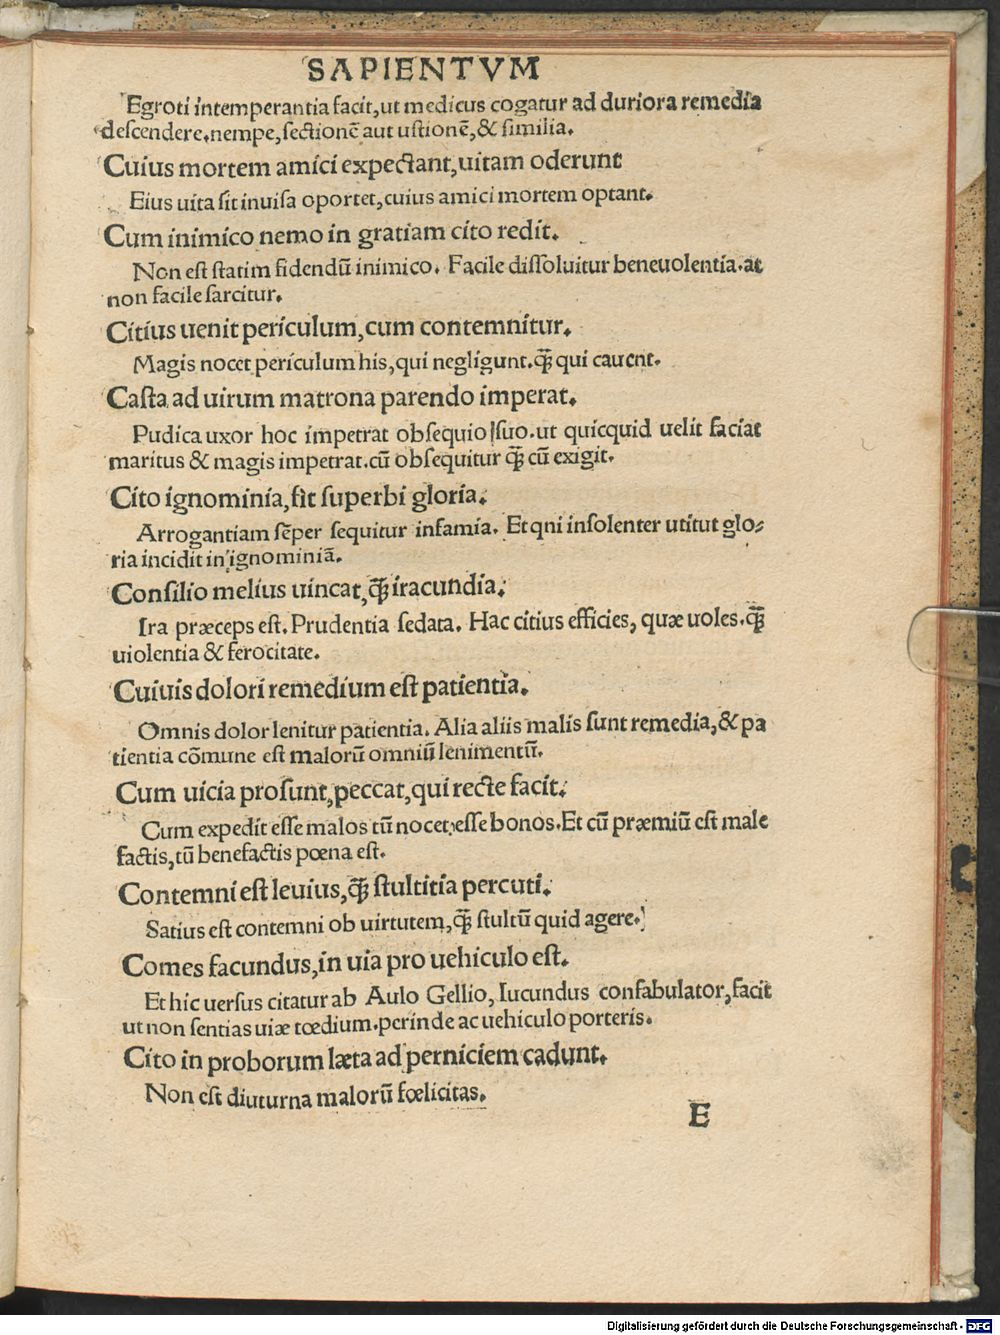 SAPIENTVM
Egroti intemperantia facit,ut medicus cogatur ad duriora remedia
descendere.nempe,sectionē aut ustionē,& similia.
Cuius mortem amici expectant,uitam oderunt
Eius uita sit inuisa oportet,cuius amici mortem optant.
Cum inimico nemo in gratiam cito redit.
Non est statim fidendū inimico. Facile dissoluitur beneuolentia.at
non facile sarcitur.
Citius uenit periculum,cum contemnitur.
Magis nocet periculum his,qui negligunt.q̄ꝫ qui cauent.
Casta ad uirum matrona parendo imperat.
Pudica uxor hoc impetrat obsequio suo.ut quicquid uelit faciat
maritus & magis impetrat.cū obsequitur q̄ꝫ cū exigit.
Cito ignominia,fit superbi gloria.
Arrogantiam sēper sequitur infamia. Et qni insolenter utitut glo⸗
ria incidit in ignominiā.
Consilio melius uincat,q̄ꝫ iracundia.
Ira præceps est. Prudentia sedata. Hac citius efficies, quæ uoles.q̄ꝫ
uiolentia & ferocitate.
Cuiuis dolori remedium est patientia.
Omnis dolor lenitur patientia. Alia aliis malis sunt remedia,& pa
tientia cōmune est malorū omniū lenimentū.
Cum uicia prosunt,peccat,qui recte facit.
Cum expedit esse malos tū nocet esse bonos.Et cū præmiū est male
factis,tū benefactis pœna est.
Contemni est leuius,q̄ꝫ stultitia percuti.
Satius est contemni ob uirtutem,q̄ꝫ stultū quid agere.
Comes facundus,in uia pro uehiculo est.
Et hic uersus citatur ab Aulo Gellio, Iucundus confabulator,facit
ut non sentias uiæ tœdium.perinde ac uehiculo porteris.
Cito in proborum læta ad perniciem cadunt.
Non est diuturna malorū fœlicitas.
E
Digitalisierung gefördert durch die Deutsche Forschungsgemeinschaft - DFG